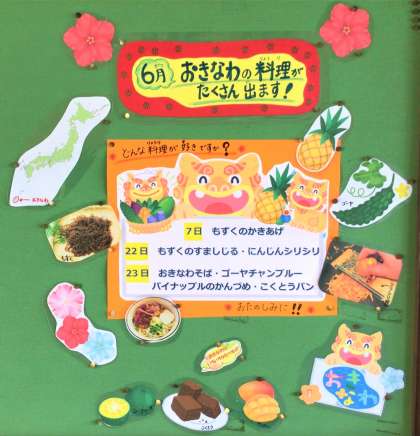 6月 おきなわの料理が
たくさん 出ます!
どんな料理が好きですか?
7日 もずくのかきあげ
22日 もずくのすましじる・にんじんシリシリ
23日 おきなわそば・ゴーヤチャンプルー
パイナップルのかんづめ・こくとうパン
おたのしみに!!
おきなわ
もずく
ゴーヤ
おきなわ